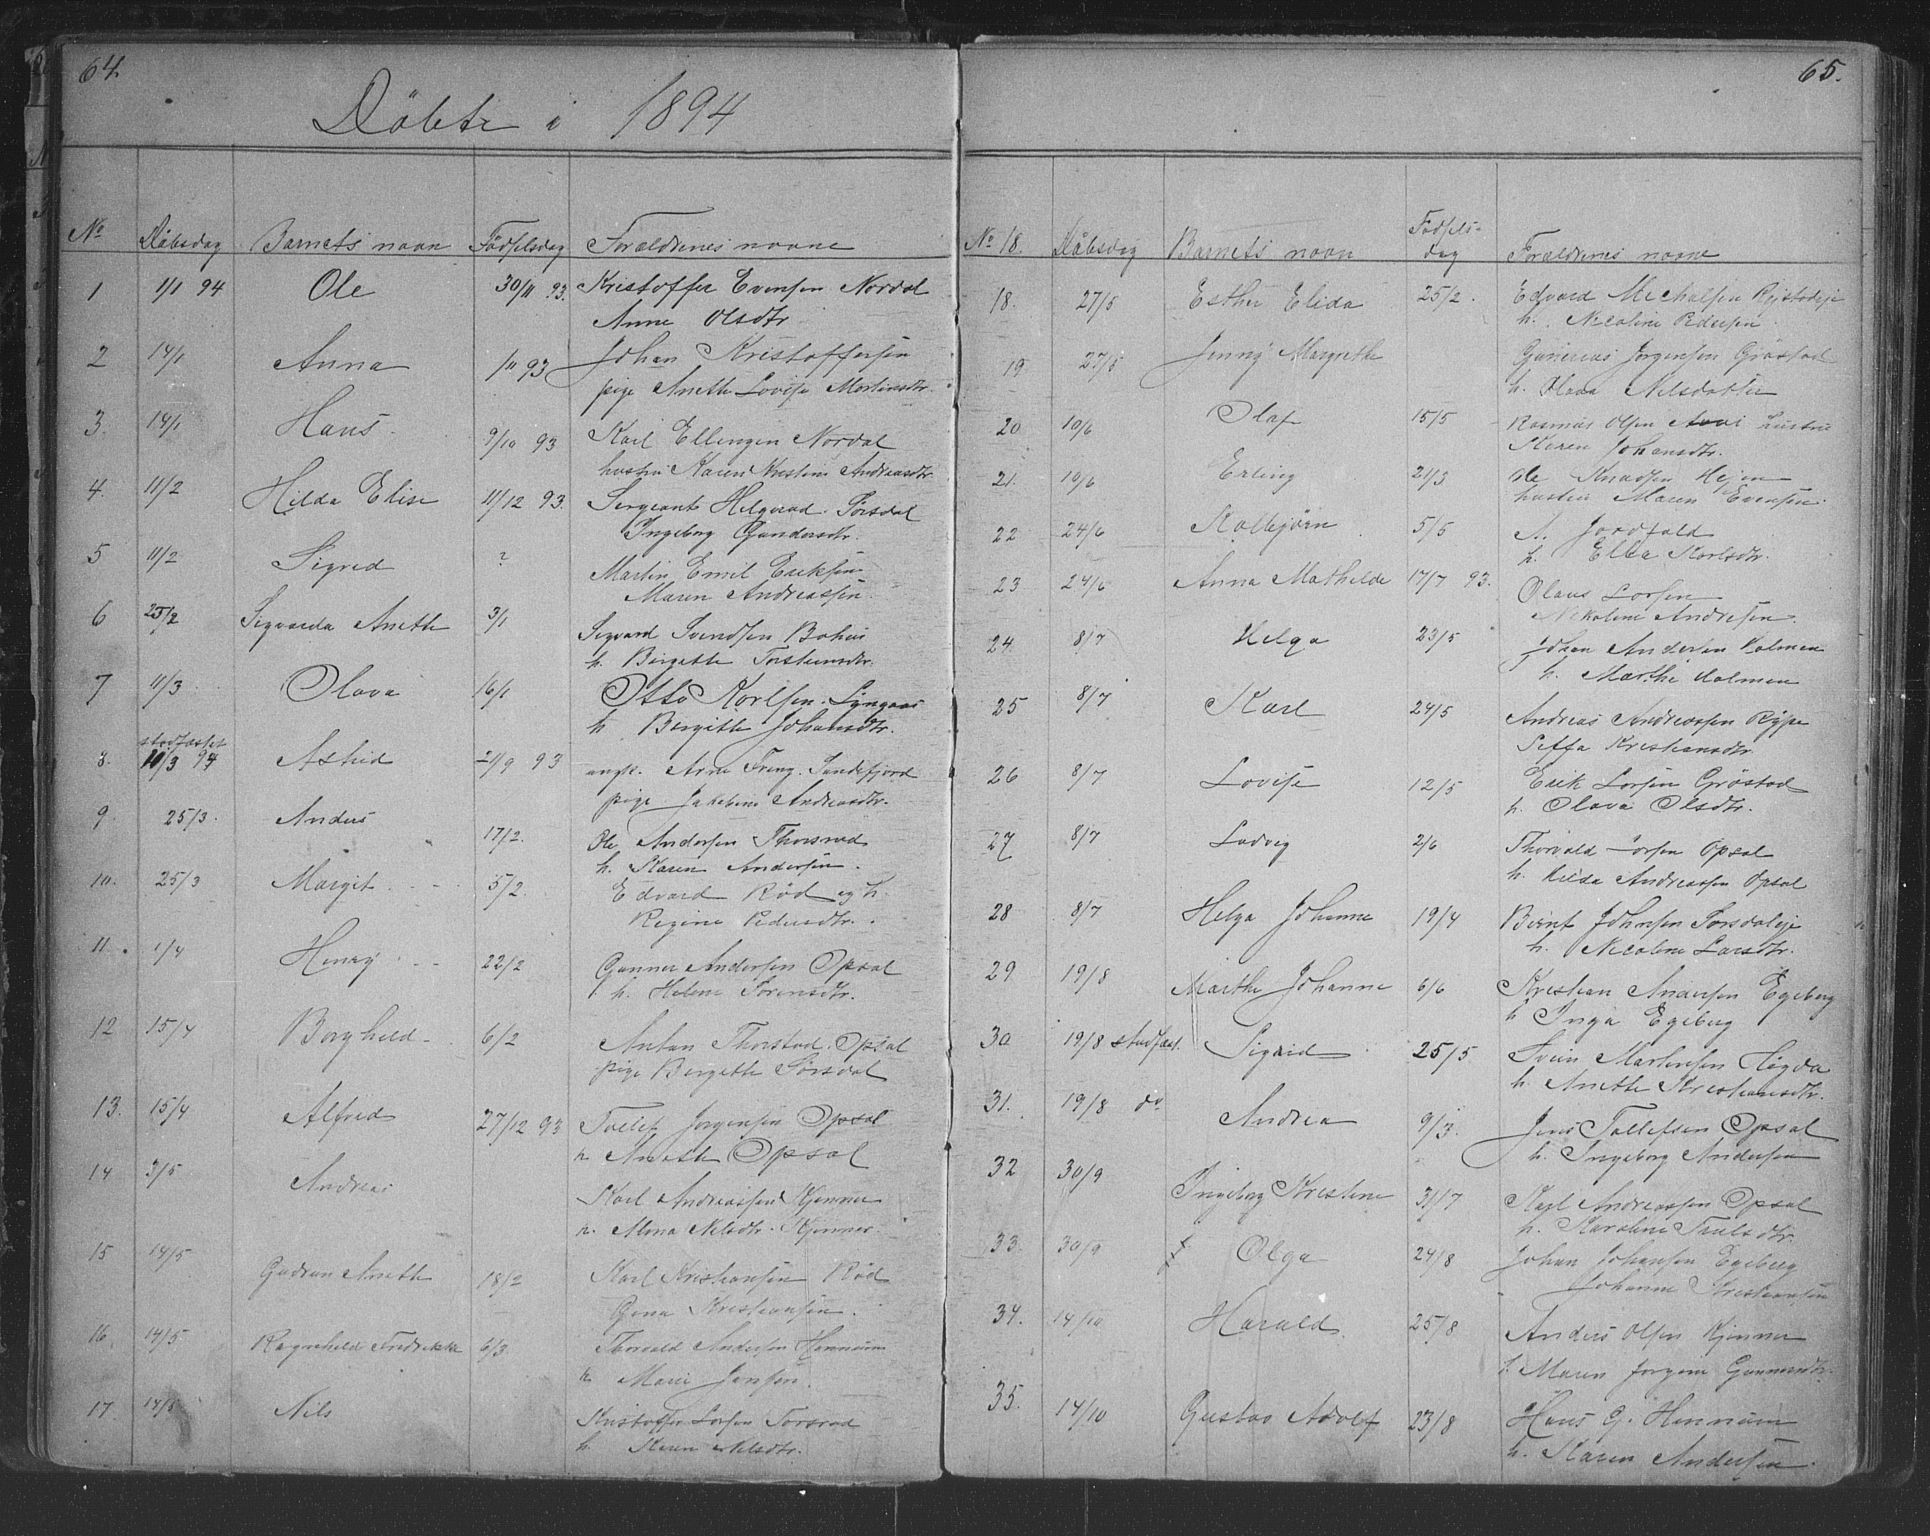 64.
Döbte i 1894
No Daabsdag Barnets navn Födselsdag Forældrenes navne
1 1/1 94 Ole 30/11 93. Kristoffer Evensen Nordal
Anne Olsdtr.
2 14/1 Anna 1/11 93 Johan Kristoffersen
pige Anette Lovise Mortinsdtr.
3. 14/1 Hans 9/10 93 Karl Ellingsen Nordal
hustru Karen Kristine Andreasdtr
4. 11/2 Hilda Elise 11/12 93. Sergeant Helgerød Torsdal
Ingeborg Gundersdtr.
5 11/2 Sigrid ? Martin Emil Eriksen
Maren Andreassen.
6 25/2 Sigvarda Anette 3/1 Sigvard Svendsen Bohus
h. Birgitte Torsteinsdtr.
7 11/3 Olava 16/1 Otto Karlsen Lyngaas
h Bergitte Johansdtr.
8. stadfæstet
11/3 94 Astrid 21/9 93 ungk. Arne Freng. Sandefjord
pige Jakobine Andreasdtr.
9. 25/3. Anders 17/2. Ole Andersen Thorsrød
h. Karen Andersen.
10. 25/3 Margit 5/2. Edvard Röd og h.
Regine Pedersdtr.
11. 1/4 Henry 22/2 Gunner Andersen Opsal
h. Helene Sorensdtr.
12 15/4 Borghild 6/2 Anton Thorstad Opsal
pige Bergitte Sörsdal
13. 15/4 Alfred 27/12 93 Tollef Jorgensen Opsal
h Anette Opsal
14 3/5 Andreas Karl Andreassen Kjenner
h. Alma Nilsdtr. Kjenner
15 14/5 Gudrun Anette 18/2 Karl Kristiansen Röd
Gina Kristiansen.
16. 14/5 Ragnhild Fredrikke 6/3 Thorvald Andersen Hennum
h Marie Jensen.
17. 14/5 Nils Kristoffer Larsen Torsrød
h Karen Nilsdtr.
65.
No 18. Daabsdag Barnets navn Födselsdag Forældrenes navne
18. 27/5 Esther Elida 25/2. Edvard Michalsen
h. Nicoline Pedersen
19 27/5 Jenny Margrethe Gunerius Jorgensen Gröstad
h. Olava Nilsdatter
20 10/6 Olaf 15/5 Rasmus Olsen
Karen Johansdtr.
21. 10/6 Erling 21/3 Ole Knudsen
hustru Maren Evensen.
22 24/6 Kolbjörn 5/5 A. Jordfald
h. Ella Karlsdtr.
23 24/6 Anna Mathilde 17/7 93. Olaus Larsen
Nikoline Andresen.
24. 8/7 Helga 23/5 Johan Andersen Holmen
h. Marthe Holmen
25 8/7 Karl 24/5 Andreas Andreassen Rype
Seffa Kristiansdtr.
26 8/7 Lovise 12/5 Erik Larsen Gröstad
h. Olava Olsdtr.
27 8/7 Ludvig 2/6 Thorvald Larsen Opsal
h. Hilda Andreassen Opsal
28 8/7 Helga Johanne 19/4 Bernt Johnsen Torsdaleje
h. Nicoline Larsdtr.
29 19/8 Marthe Johanne 6/6 Kristian Andersen Egeberg
h Inga Egeberg
30 19/8 stadfæst. Sigrid 25/5 Svein Martinsen Högda
h. Anette Kristiansdtr.
31. 19/8 do Andrea 9/3. Jens Tollefsen Opsal
h. Ingeborg Andersen
32 30/9 Ingeborg Kristine 31/7 Karl Andreassen Opsal
h. Karoline Trulsdtr.
33. 30/9 Olga 24/8 Johan Johansen Egeberg
Johanne Kristiansen
34. 14/10 Harald. 25/8 Anders Olsen Kjenner
h. Maren Jorgine Gunnersdtr.
35. 14/10 Gustav Adolf 23/8 Hans G. Hennum
h. Karen Andersen.